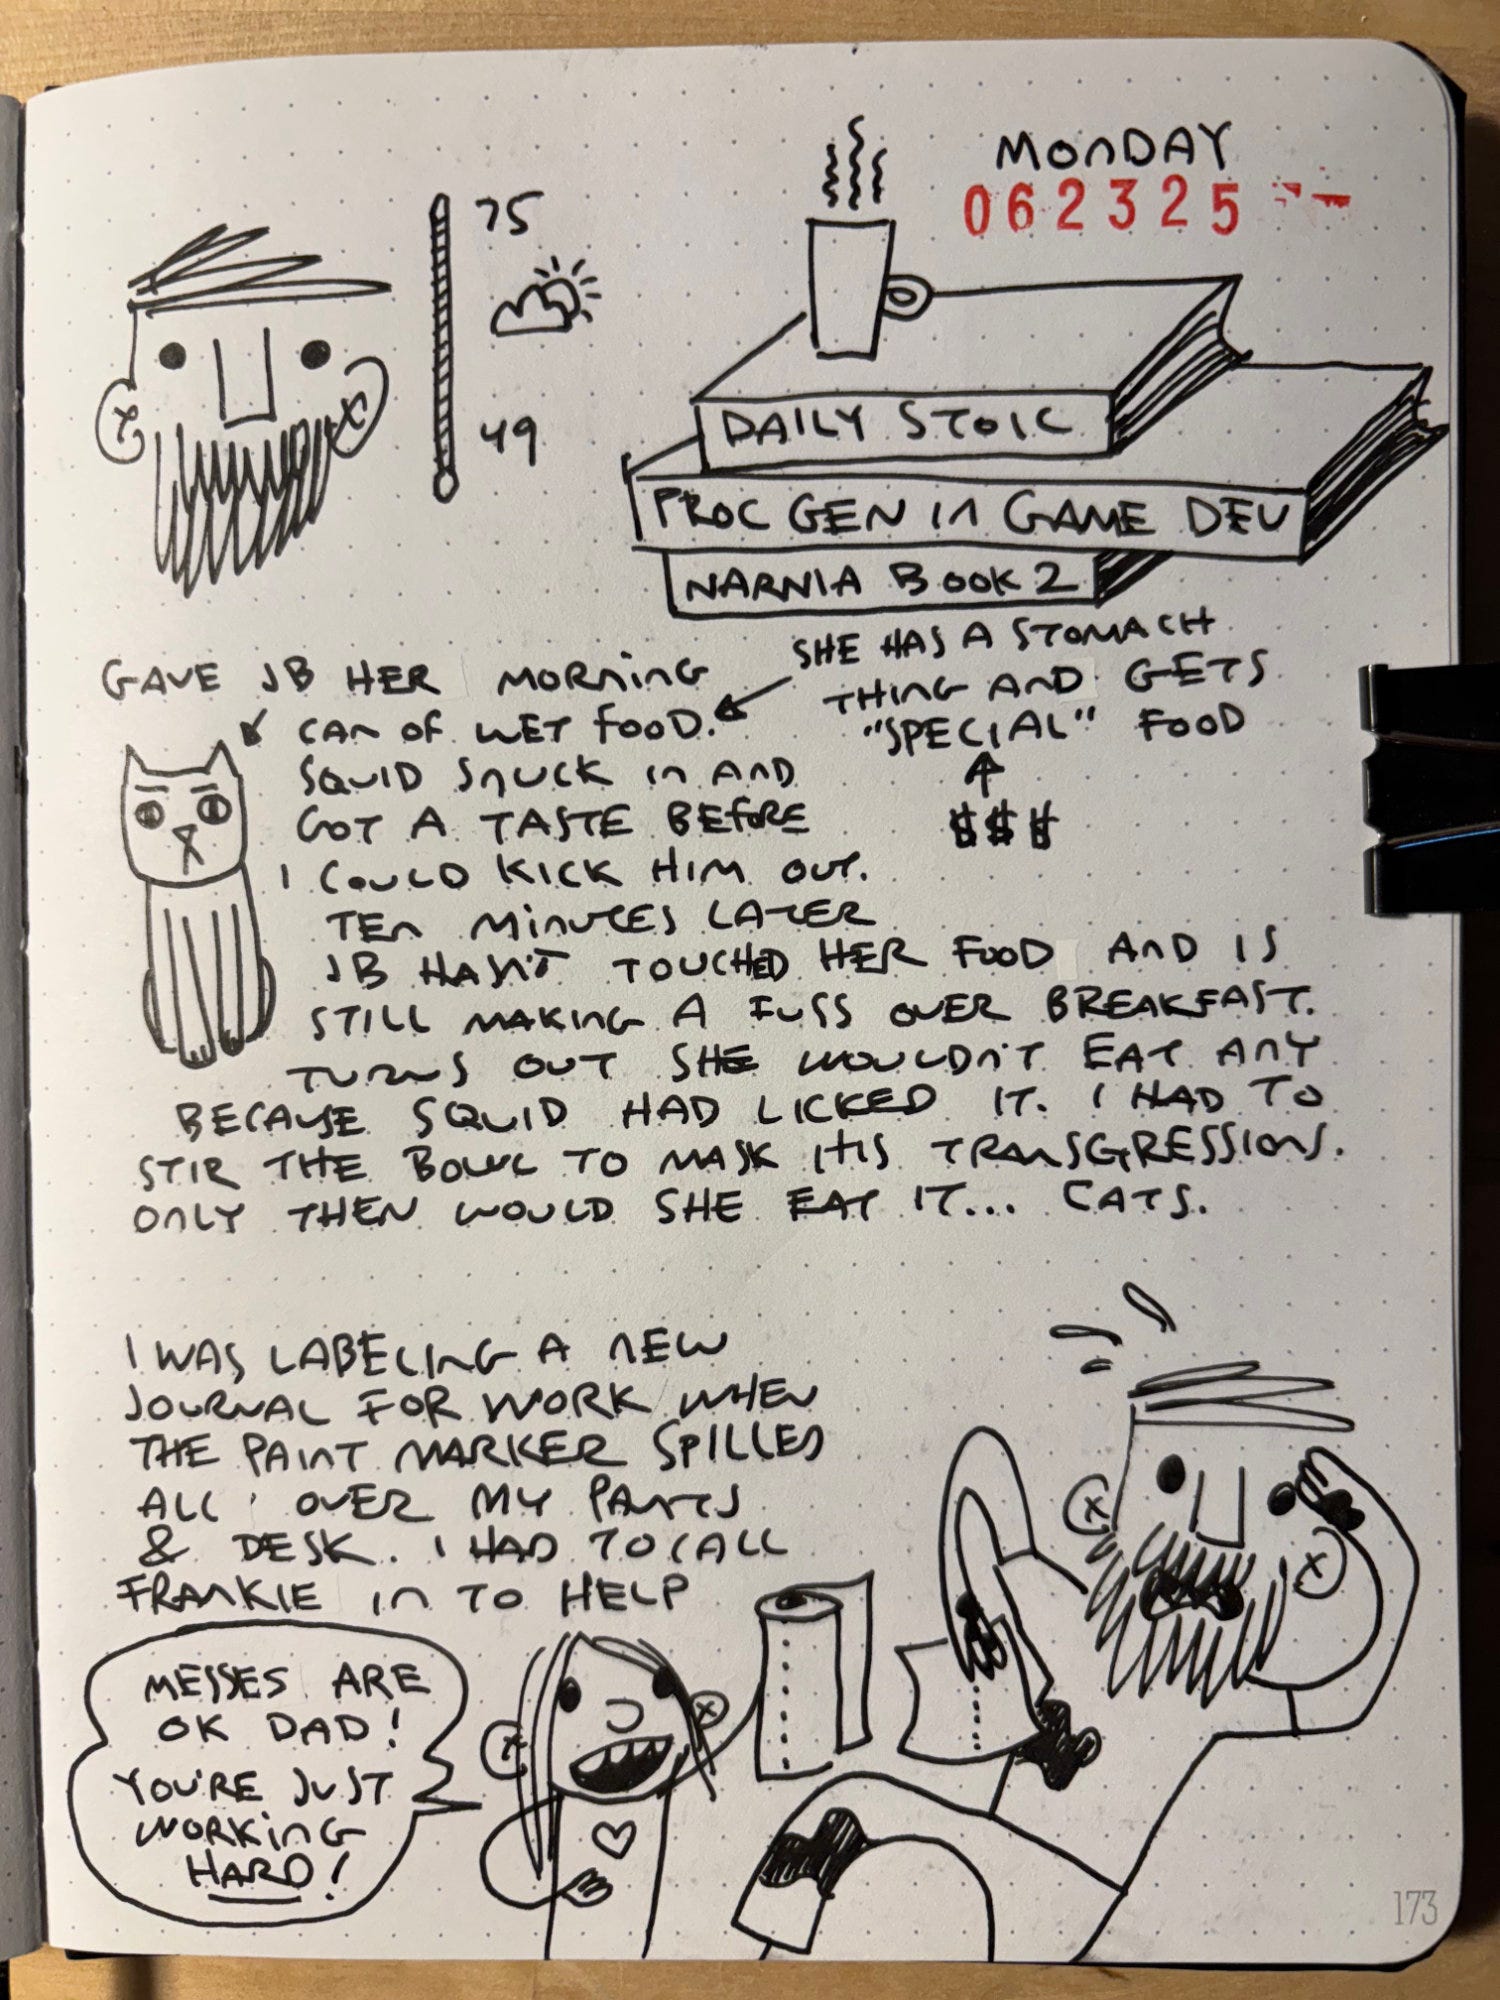 MONDAY
062325
75
49
DAILY STOIC
PROC GEN IN GAME DEV
NARNIA BOOK 2
GAVE JB HER MORNING
CAN OF WET FOOD.
SHE HAS A STOMACH
THING AND GETS
"SPECIAL" FOOD
$$$
SQUID SNUCK IN AND
GOT A TASTE BEFORE
I COULD KICK HIM OUT.
TEN MINUTES LATER
JB HASN'T TOUCHED HER FOOD AND IS
STILL MAKING A FUSS OVER BREAKFAST.
TURNS OUT SHE WOULDN'T EAT ANY
BECAUSE SQUID HAD LICKED IT. I HAD TO
STIR THE BOWL TO MASK HIS TRANSGRESSIONS.
ONLY THEN WOULD SHE EAT IT... CATS.
I WAS LABELING A NEW
JOURNAL FOR WORK WHEN
THE PAINT MARKER SPILLED
ALL OVER MY PANTS
& DESK. I HAD TO CALL
FRANKIE IN TO HELP
MESSES ARE
OK DAD!
YOU'RE JUST
WORKING
HARD!
173